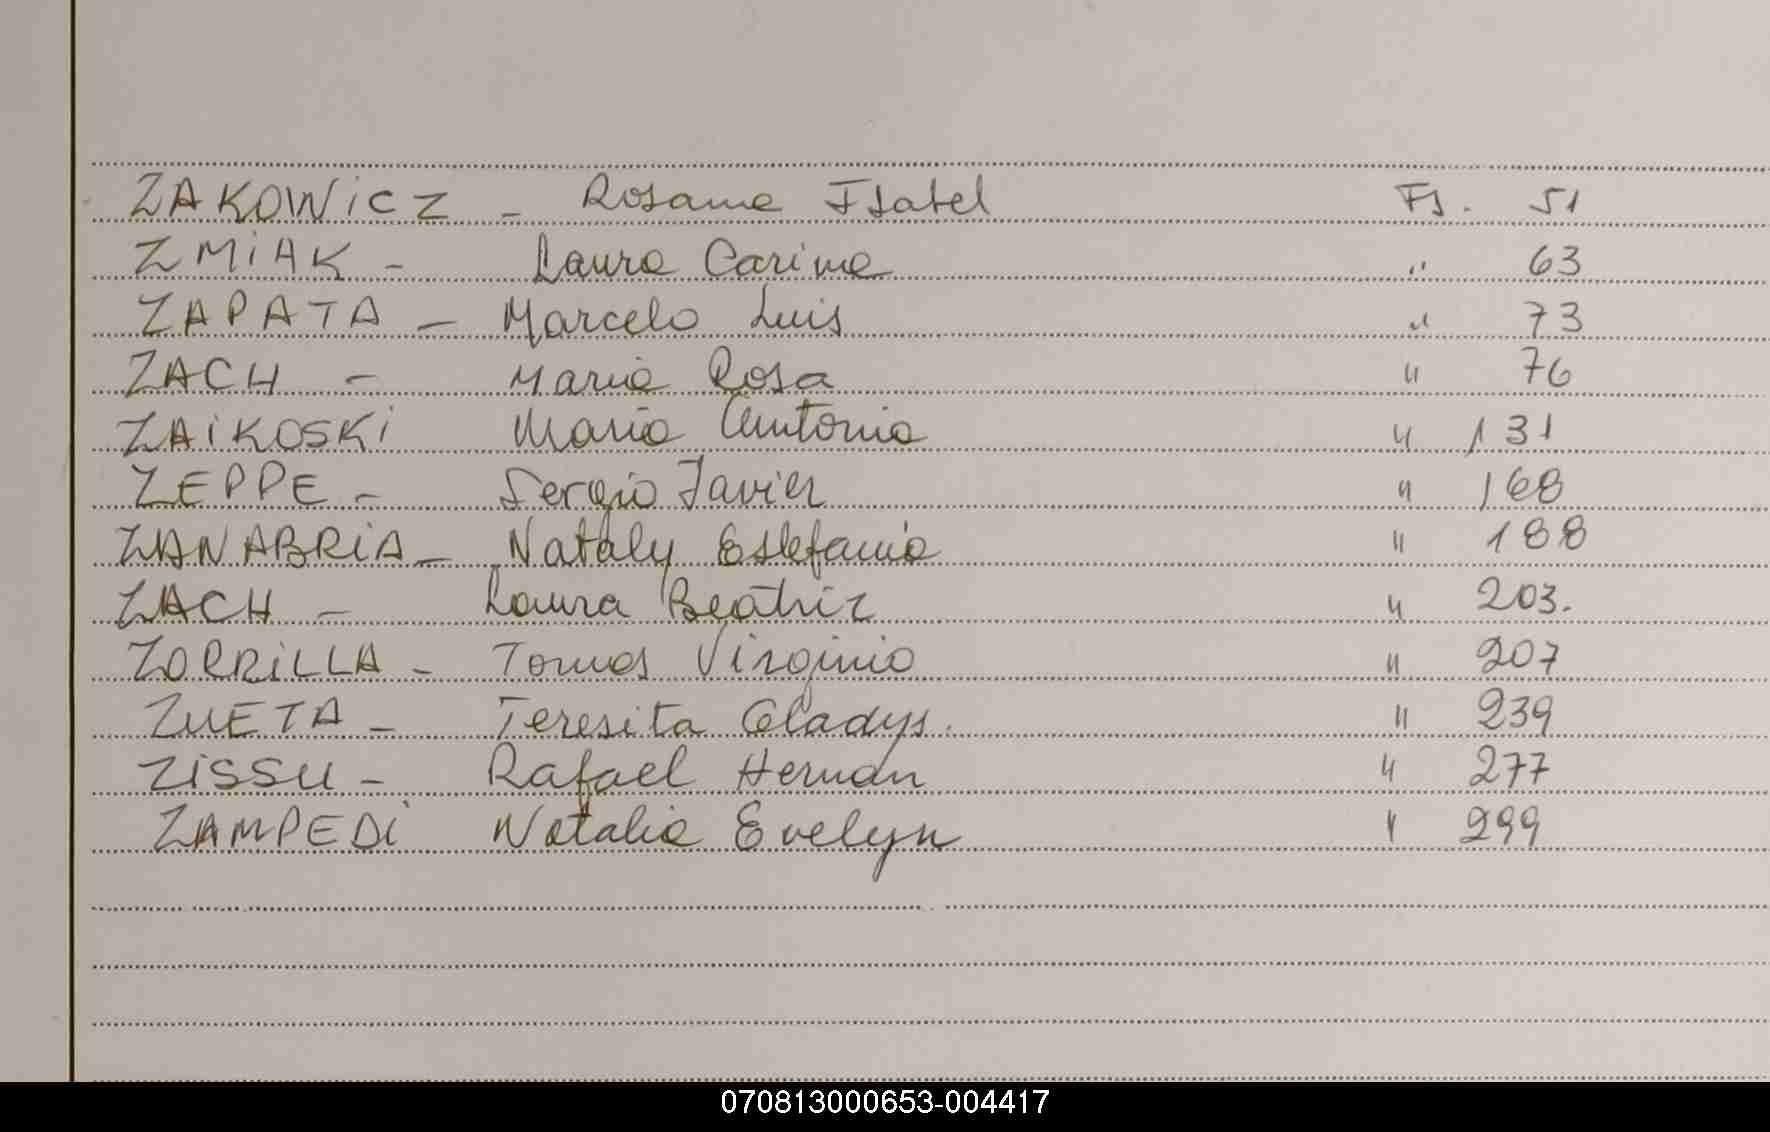 ZAKOWICZ - Rosana Isabel Fs. 51
ZMIAK - Laura Carina " 63
ZAPATA - Marcelo Luis " 73
ZACH - Maria Rosa " 76
ZAIKOSKI Maria Antonia " 131
ZEPPE - Sergio Javier " 168
ZANABRIA - Nataly Estefania " 188
ZACH - Laura Beatriz " 203.
ZORRILLA - Tomas Virginio " 207
ZUETA - Teresita Gladys. " 239
ZISSU - Rafael Hernan " 277
ZAMPEDI Natalia Evelyn " 299
070813000653-004417